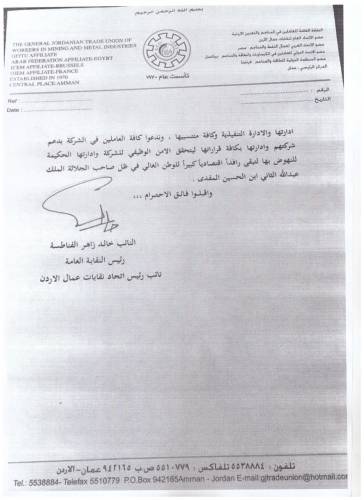 بسم الله الرحمن الرحيم
THE GENERAL JORDANIAN TRADE UNION OF
WORKERS IN MINING AND METAL INDUSTRIES
GJTUC AFFILIATE
ARAB FEDERATION AFFILIATE-EGYPT
ICEM AFFILIATE-BRUSSELS
OIEM AFFILIATE-FRANCE
ESTABLISHED IN 1970
CENTRAL PLACE-AMMAN
تأسست عام ١٩٧٠
النقابة العامة للعاملين في المناجم والتعدين الأردنية
المركز الرئيسي - عمان
Ref :
الرقم :
Date :
التاريخ :
ادارتها والادارة التنفيذية وكافة منتسبيها ، وندعوا كافة العاملين في الشركة بدعم
شركتهم وادارتها بكافة قراراتها ليتحقق الامن الوظيفي للشركة وادارتها الحكيمة
للنهوض بها لتبقى رافداً اقتصادياً كبيراً للوطن الغالي في ظل صاحب الجلالة الملك
عبدالله الثاني ابن الحسين المفدى .
واقبلوا فائق الاحترام ،،،
النائب خالد زاهر الفناطسة
رئيس النقابة العامة
نائب رئيس اتحاد نقابات عمال الاردن
تلفون : ٥٥٣٨٨٨٤ تلفاكس : ٥٥١٠٧٧٩ ص.ب ٩٤٢١٦٥ عمان-الاردن
Tel.: 5538884- Telefax 5510779 P.O.Box 942165Amman - Jordan E-mail:gjtradeunion@hotmail.com